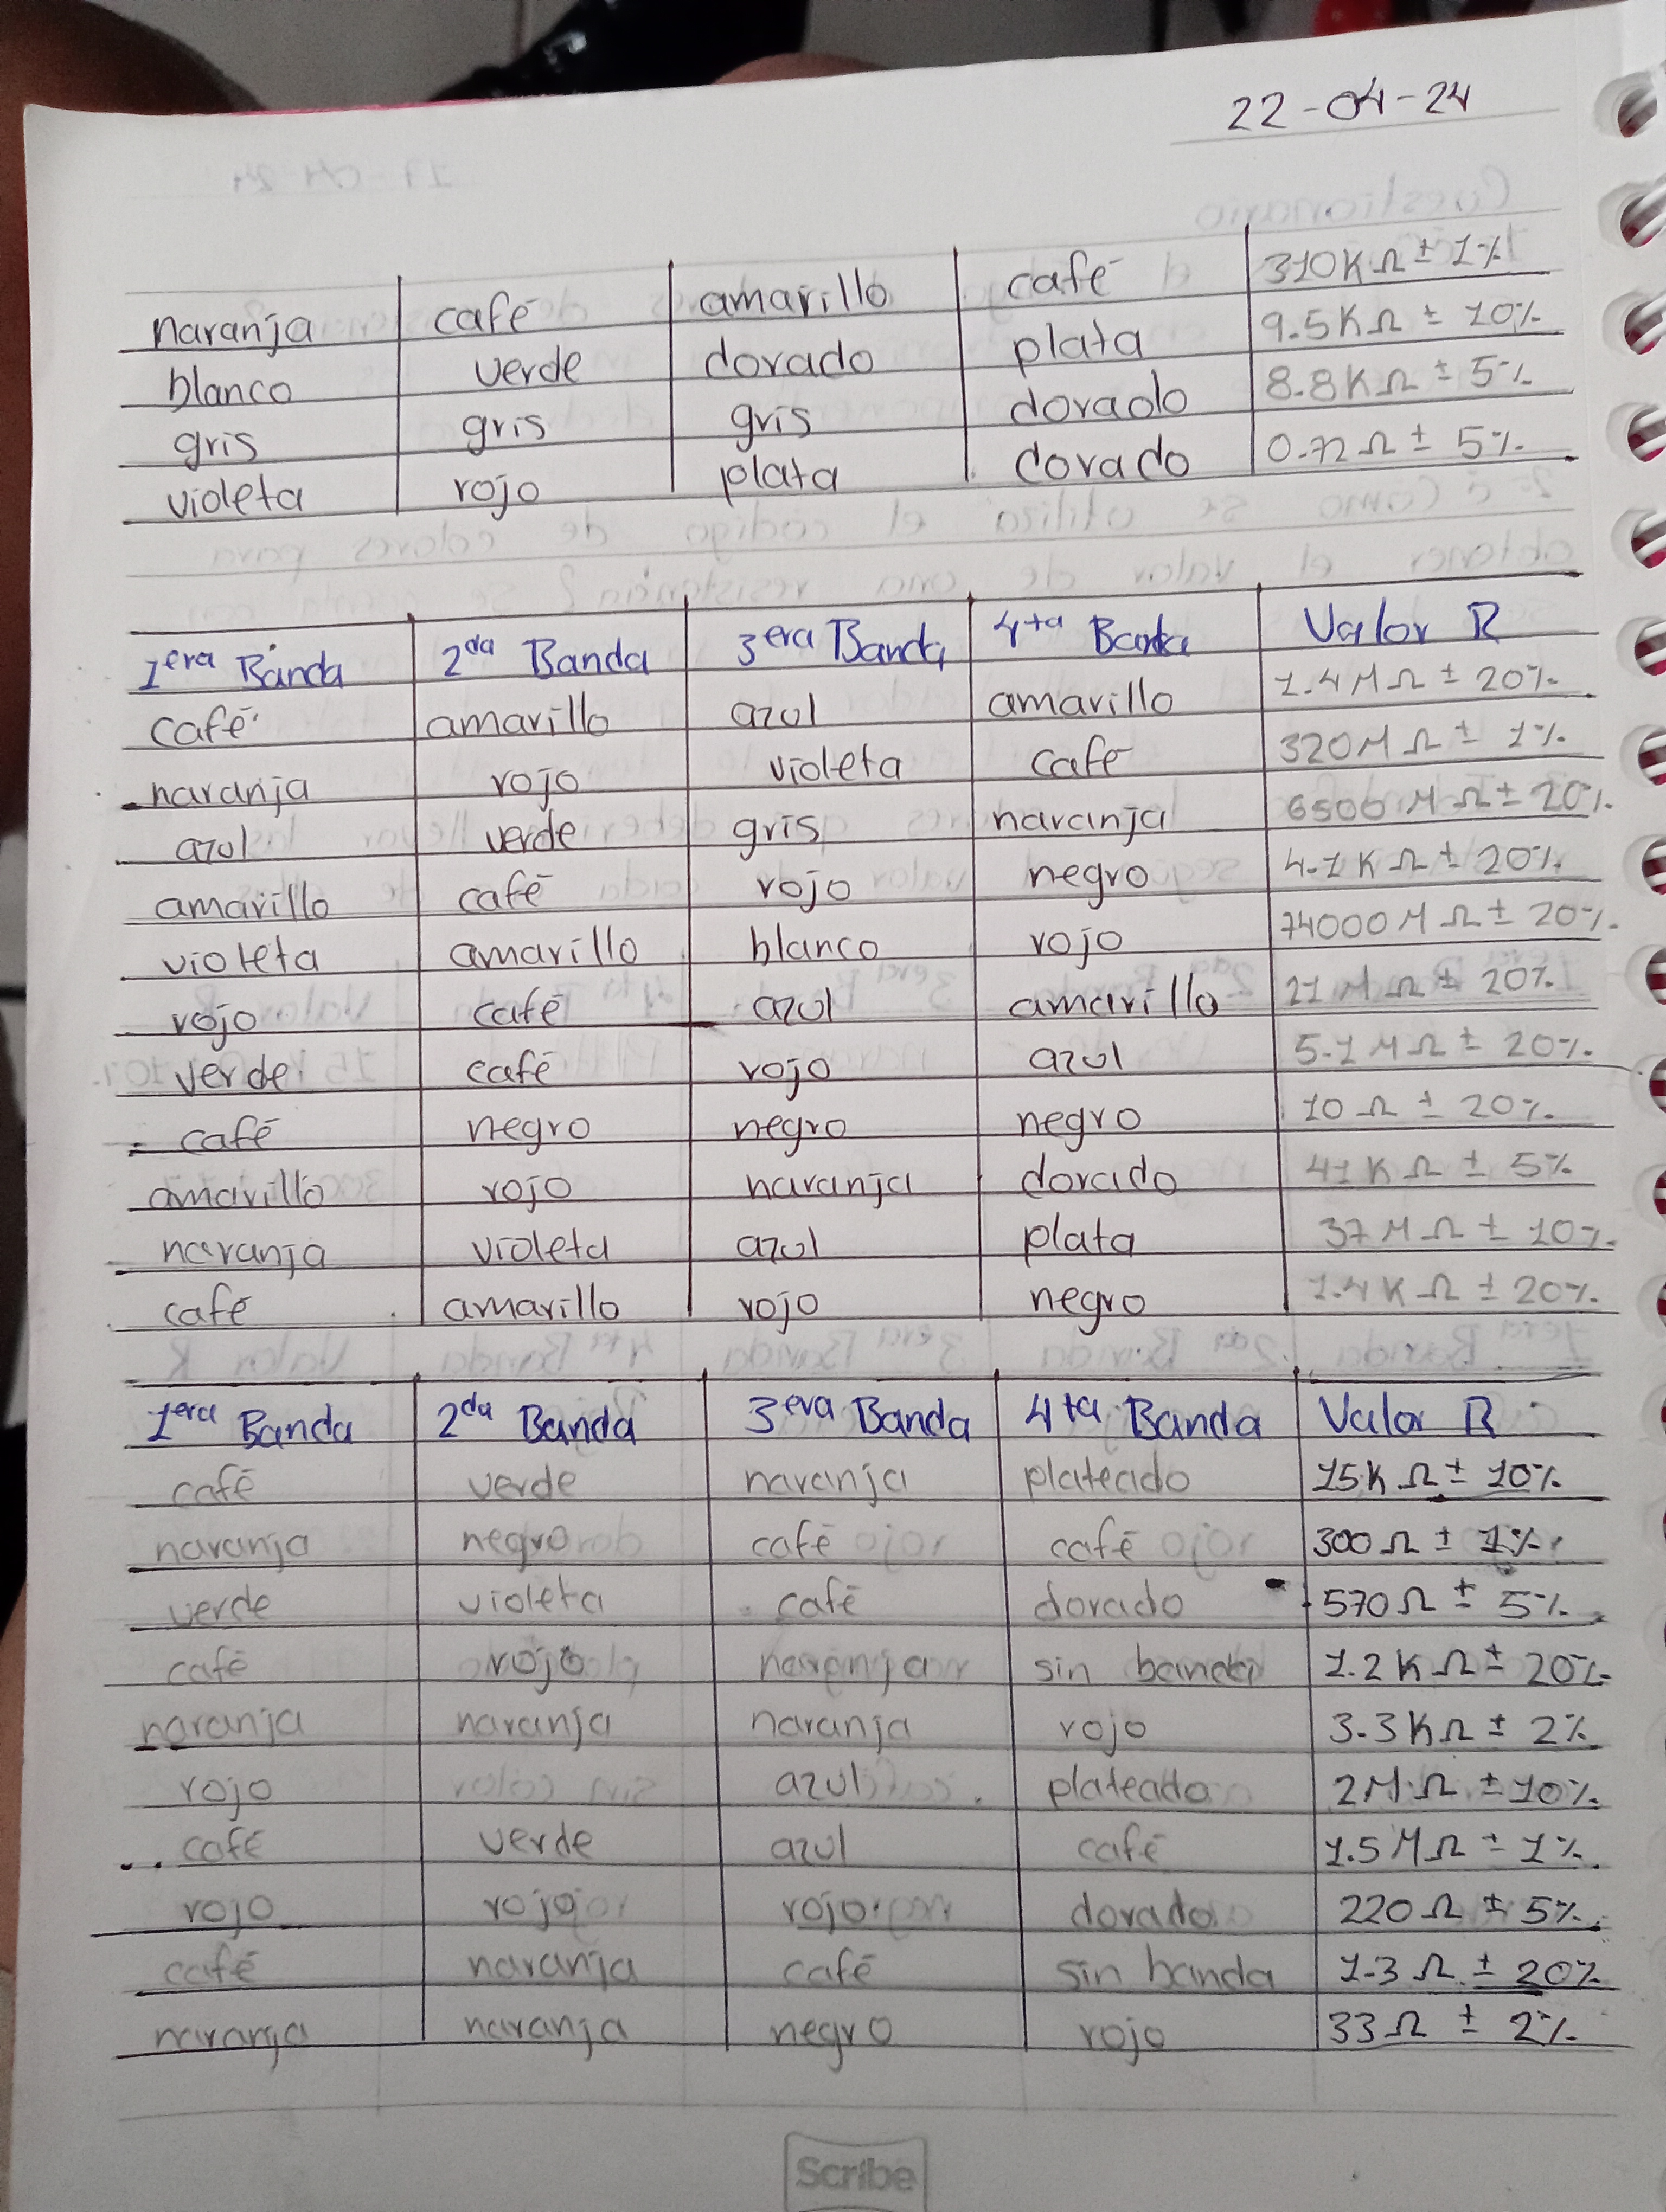 22-04-24
naranja café amarillo café 310KΩ ± 1%
blanco verde dorado plata 9.5KΩ ± 10%
gris gris gris dorado 8.8KΩ ± 5%
violeta rojo plata dorado 0.72Ω ± 5%
1era Banda 2da Banda 3era Banda 4ta Banda Valor R
café amarillo azul amarillo 1.4MΩ ± 20%
naranja rojo violeta café 320MΩ ± 1%
azul verde gris naranja 6500MΩ ± 20%
amarillo café rojo negro 4.1KΩ ± 20%
violeta amarillo blanco rojo 74000MΩ ± 20%
rojo café azul amarillo 21MΩ ± 20%
verde café rojo azul 5.1MΩ ± 20%
café negro negro negro 10Ω ± 20%
amarillo rojo naranja dorado 41KΩ ± 5%
naranja violeta azul plata 37MΩ ± 10%
café amarillo rojo negro 1.4KΩ ± 20%
1era Banda 2da Banda 3era Banda 4ta Banda Valor R
café verde naranja plateado 15KΩ ± 10%
naranja negro café café 300Ω ± 1%
verde violeta café dorado 570Ω ± 5%
café rojo naranja sin banda 1.2KΩ ± 20%
naranja naranja naranja rojo 3.3KΩ ± 2%
rojo azul plateado 2MΩ ± 10%
café verde azul café 1.5MΩ ± 1%
rojo rojo rojo dorado 220Ω ± 5%
café naranja café sin banda 1.3Ω ± 20%
naranja naranja negro rojo 33Ω ± 2%
Scribe